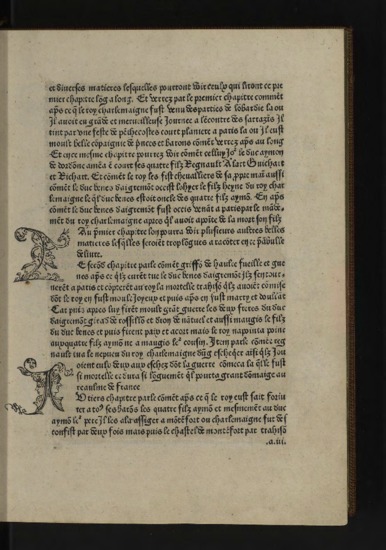 et diverses matieres lesquelles pourront voir ceulx qui liront ce pre
mier chapitre log a long. Et verrez par le premier chapitre commēt
apꝭ ce q̄ le roy charlemaigne fust venu des parties de lobardie la ou
il avoit eu grāde et merveilleuse journee a lecontre des sarrazīs Il
tint par une feste de pēthecostes court planiere a paris la ou il eust
moult belle cōpaignie de prīces et barons cōmēt verrez apꝭ au long
Et en ce mesme chapitre pourrez voir cōmēt celluy jor le duc aymon
de dordōne amēa a court ses quatre filz Regnault Alart Guichart
et Richart. Et cōmēt le roy les fist chevalliers de sa ppre mai aussi
cōmēt le duc benes daigremōt occist lohyer le filz aisne du roy char
lemaigne le ql̄ duc benes estoit oncle des quatre filz aymō. En apꝭ
cōmēt le duc benes daigremōt fust occis venāt a paris par le māde-
mēt du roy charlemaigne apres ql̄ avoit apoīte de la mort son filz
Au pmier chapitre lon pourra voir plusieurs aultres belles
matieres lesq̄lles seroiēt trop lōgues a racōter en ce
de livre.
Le secōd chapitre parle cōmēt griffō de haulte fueille et gue
nes apꝭ ce qlz eurēt tue le duc benes daigremōt ilz sen tour-
nerēt a paris et cōpterēt au roy la mortelle trahisō qlz avoiēt cōmise
dōt le roy en fust moult joyeux et puis apꝭ en fust marry et doullāt
Car puis apres luy firēt moult grāt guerre les deux freres du duc
daigremōt girard de rossillō et dron de nātueil et aussi maugis le filz
du duc benes et puis firent paix et acort mais le roy napointa point
aux quatre filz aymō ne a maugis ler cousin. Item parle cōmēt reg
nault tua le nepueu du roy charlemaigne dūg eschequier aīsi qlz Jou
oient eulx deux aux eschez dōt la guerre cōmēca la qlle fust
si mortelle et dura si lōguemēt ql̄ porta grant dōmaige au
reaulme de france
Le tiers chapitre parle cōmēt apꝭ ce q̄ le roy eust fait foriu
rer a tos ses barōs les quatre filz aymō et mesmemēt au duc
aymō ler pere Il les ala assiger a mōtēfort ou charlemaigne fut des
confist par deux fois mais puis le chastel de montēfort par trahisō
.a.iii.